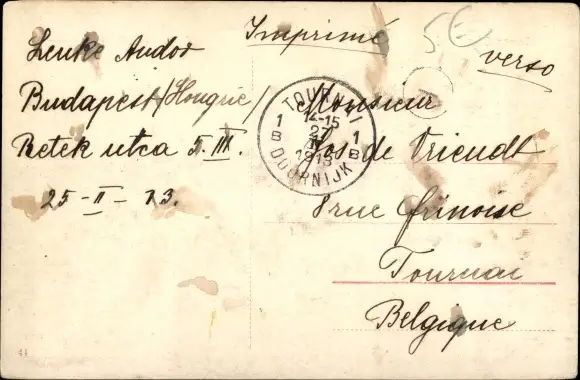 Imprimé
verso
5€
Lenke Andor
Budapest /Hongrie/
Retek utca 5. III.
25-II-13.
TOURNAI
1 12-15 1
B 27 B
II
1913
DOORNIJK
Monsieur
Jos de Vriendt
8 rue
Tournai
Belgique
41